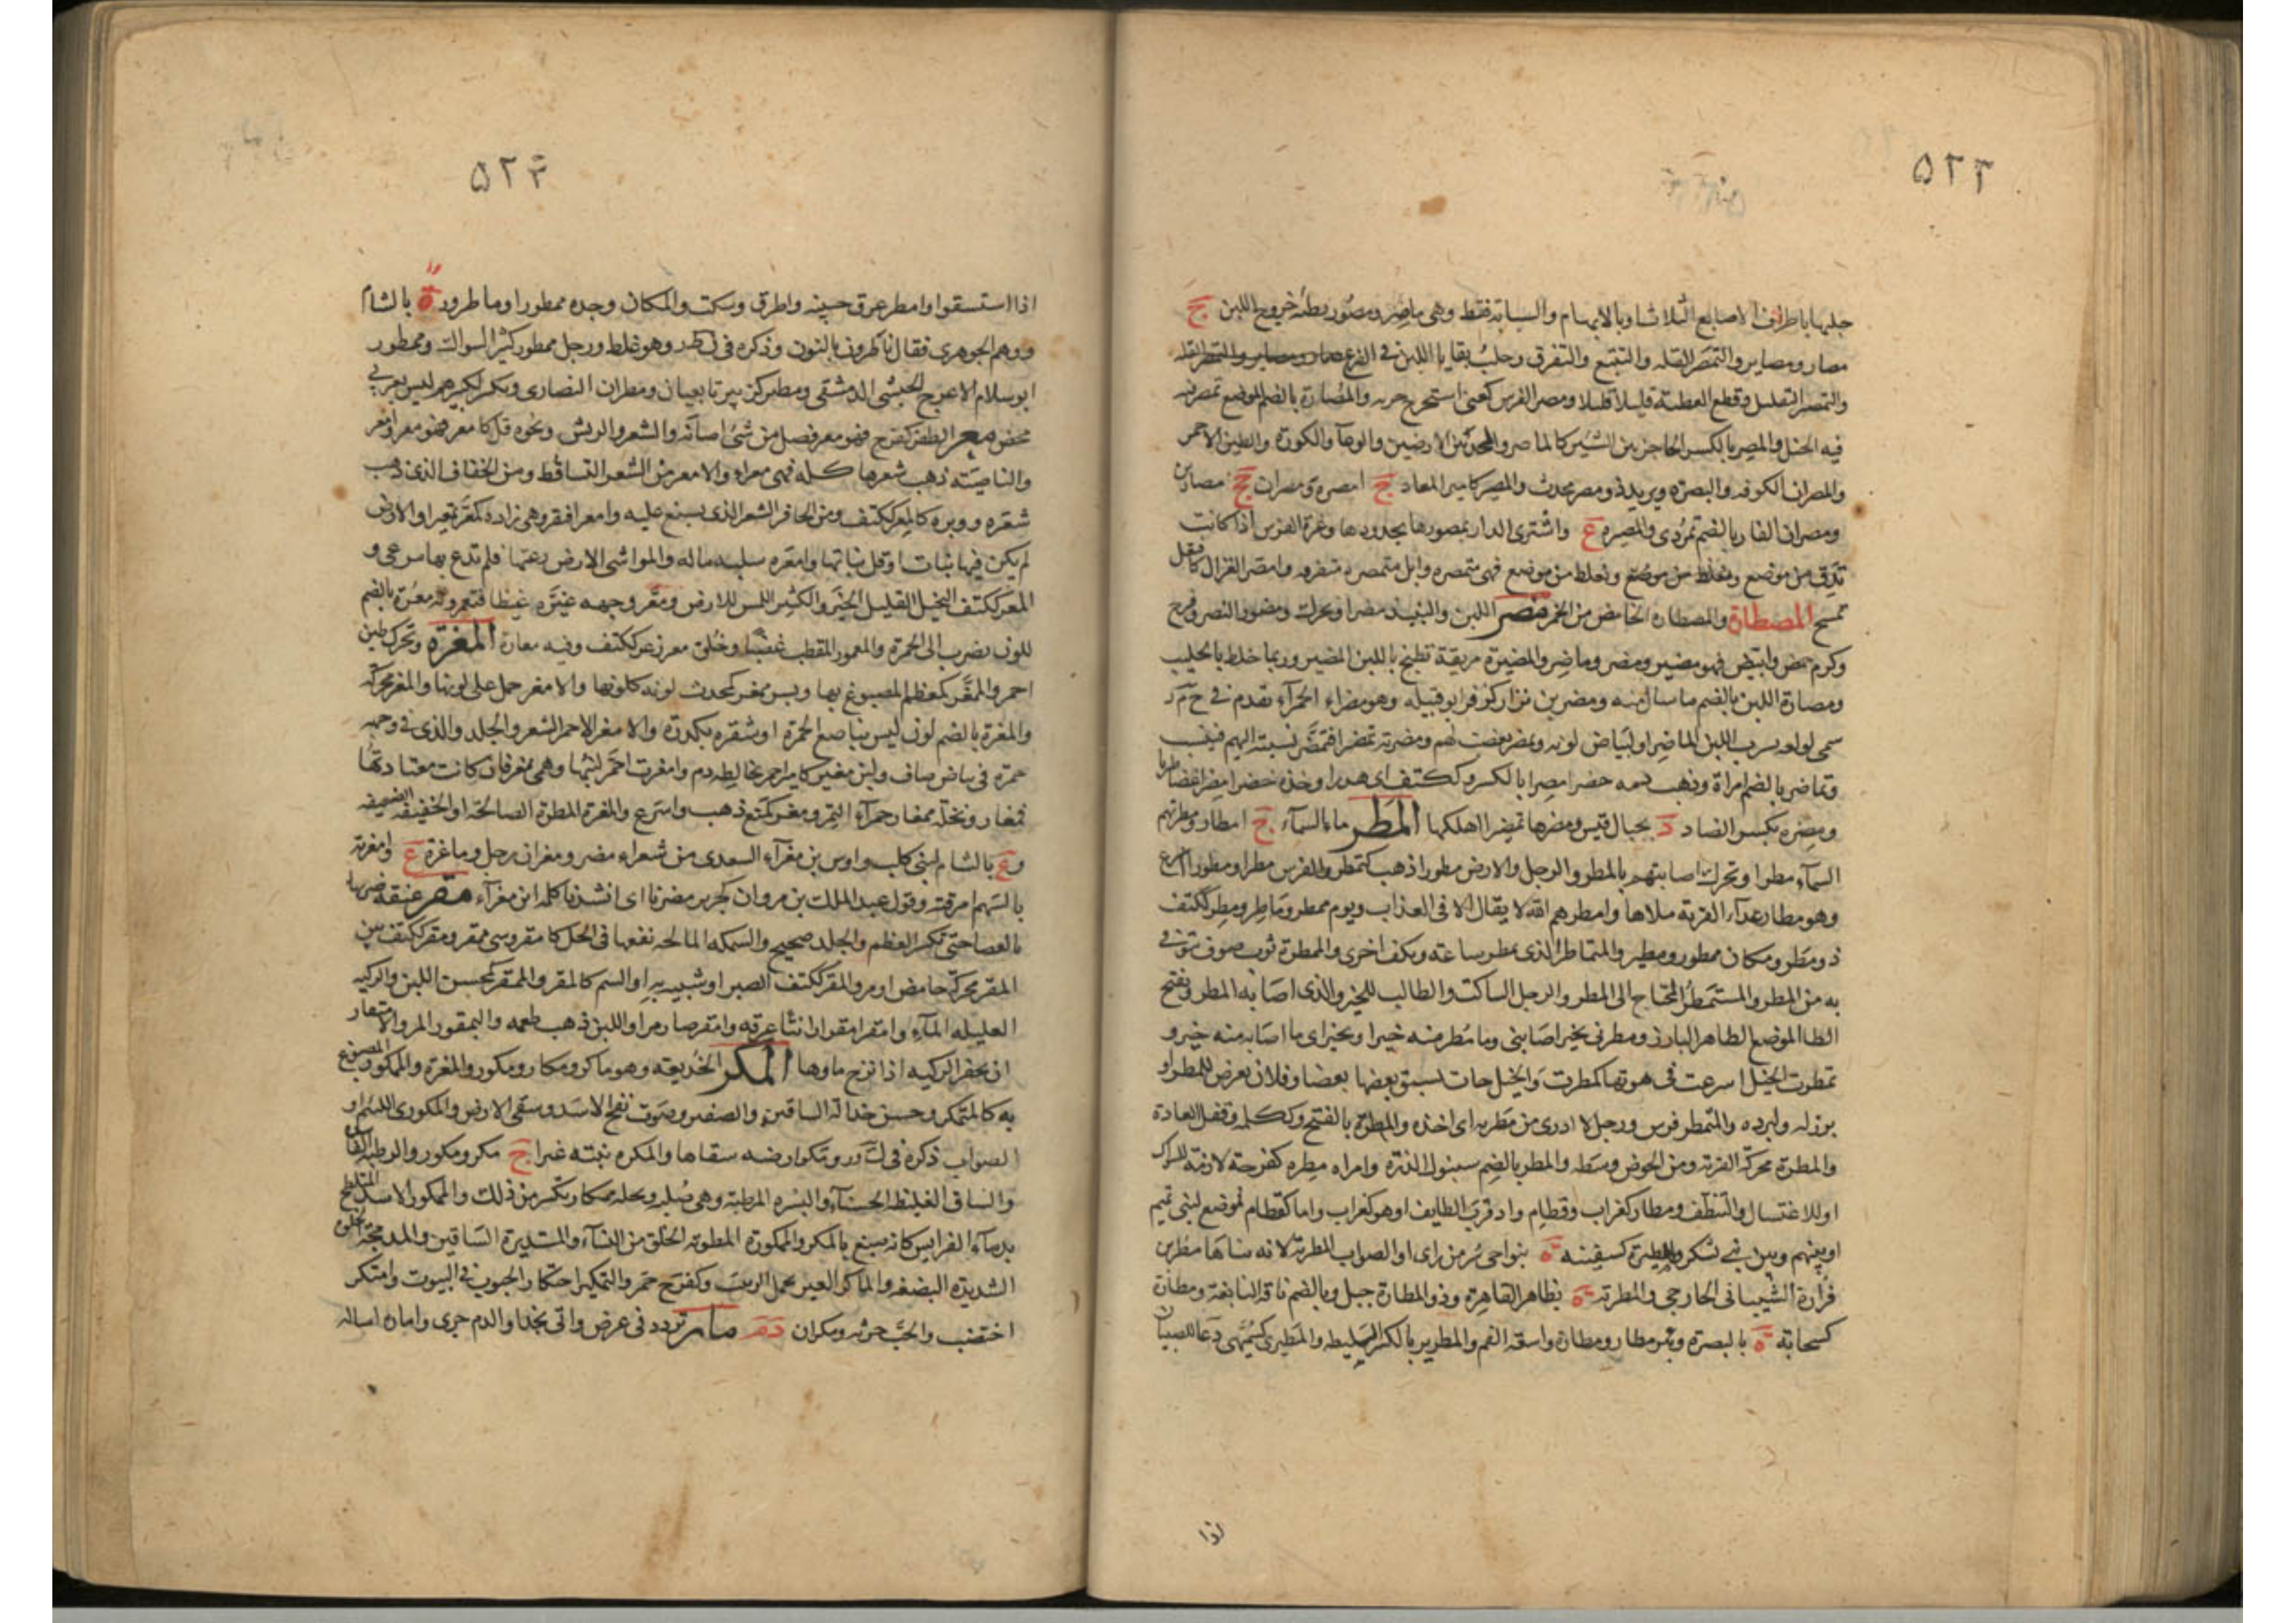 ۵۲۲
حلبها باطراف الاصابع الثلاث او بالابهام والسبابة فقط وهى ماصر ومصور بطئة خروج اللبن ج
مصار ومصاير والتمصر القلة والتتبع والتفرق وحلب بقايا اللبن فى الضرع
والتمصير التقليل وقطع العطية قليلا قليلا ومصر الفرس كعنى استخرج جريه والمصارة بالضم الموضع تمصر
فيه الخيل والمصر بالكسر الحاجز بين الشيين كالماصر والحد بين الارضين والوعاء والكورة والطين الاحمر
والمصران الكوفه والبصرة ويزيد ذو مصر محدث والمصير كامير المعاء ج امصرة ومصران جج مصارين
ومصران الفار بالضم تمر ردى والمصيره ع واشترى الدار بمصورها بحدودها وغرة الفرس اذا كانت
تدق من موضع وتغلظ من موضع فهى متمصره وابل متمصره متفرقه وامصر الغزال كافتعل
تمسح المصطارة والمصطاره الحامض من الخمر مضر اللبن والنبيذ مضرا ويحرك ومضورا كنصر وفرح
وكرم حمض وابيض فهو مضير ومضر وماضر والمضيرة مريقة تطبخ باللبن المضير وربما خلط بالحليب
ومضارة اللبن بالضم ما سال منه ومضر بن نزار كزفر ابو قبيله وهو مضراء الحمراء تقدم فى ح م ر
سمى لولعه بشرب اللبن الماضر او لبياض لونه وتمضر تعصب لهم ومضرته تمضيرا فتمضر نسبته اليهم فنسب
وتماضر بالضم امراة وذهب دمه خضرا مضرا بالكسر وككتف اى هدرا وخذه خضرا مضرا غضا طريا
ومضره بكسر الضاد د بجبال قيس ومضرها تمضيرا اهلكها المطر ماء السماء ج امطار ومطرتهم
السماء مطرا وتحرك اصابتهم بالمطر والرجل والارض مطورا ذهب كتمطر والفرس مطرا ومطورا اسرع
وهو مطار عداء القربة ملاها وامطرهم الله لا يقال الا فى العذاب ويوم ممطر وماطر ومطر ككتف
ذو مطر ومكان ممطور ومطير والمتماطر الذى يمطر ساعة ويكف اخرى والممطرة ثوب صوف يتوقى
به من المطر والمستمطر المحتاج الى المطر والرجل الساكت والطالب للخير والذى اصابه المطر وبفتح
الطا الموضع الظاهر البارز ومطرنى بخير اصابنى وما مطر منه خيرا وبخير اى ما اصابه منه خير و
تمطرت الخيل اسرعت فى هويها كمطرت والخيل جات يسبق بعضها بعضا وفلان تعرض للمطر او
برز له ولبرده والمتمطر فرس ورجل لا ادرى من مطر به اى اخذه والمطرة بالفتح وككلمة وقفل العادة
والمطرة محركة القربة ومن الحوض وسطه والمطر بالضم سنبول الذرة وامراه مطره كفرحة لازمة للسواك
او للاغتسال والتنظف ومطار كغراب وقطام واد قرب الطايف او هو كغراب واما كقطام فموضع لبنى تميم
او بينهم وبين بنى يشكر والمطيرة كسفينه ة بنواحى سر من راى او الصواب المطرية لانه بناها مطر بن
فزارة الشيبانى الخارجى والمطرية ة بظاهر القاهرة وذو المطارة جبل وبالضم ناقة النابغة ومطارة
كسحابة ة بالبصرة وبئر مطار ومطارة واسعة الفم والمطرير بالكسر السليطه والمطيرى كسميهى دعاء للصبيان
اذا
۵۲۳
اذا استسقوا وامطر عرق جبينه واطرق وسكت والمكان وجده ممطورا وماطرون ة بالشام
ووهم الجوهرى فقال ناطرون بالنون وذكره فى نطر وهو غلط ورجل ممطور كثير السواك وممطور
ابو سلام الاعرج الحبشى الدمشقى ومطر كزبير تابعيان ومطران النصارى ويكسر لكبيرهم ليس بعربى
محض معر الظفر كفرح فهو معر فصل من شئ اصابه والشعر والريش ونحوه قل كامعر فهو معر وامعر
والناصية ذهب شعرها كله فهى معراء والامعر من الشعر المتساقط ومن الخفاف الذى ذهب
شعره ووبره كالمعر ككتف ومن الحافر الشعر الذى يسبغ عليه وامعر افتقر وفنى زاده كمعر تمعيرا والارض
لم يكن فيها نبات او قل نباتها وامعره سلبه ماله والمواشى الارض رعتها فلم تدع بها مرعى و
المعر ككتف البخيل القليل الخير والكثير اللمس للارض ومعر وجهه غيره غيظا فتمعر ولونه معرة بالضم
للون يضرب الى الحمرة والممعور المقطب غضبا وخلق معر زعر ككتف وفيه معارة المغرة وتحرك طين
احمر والممغر كمعظم المصبوغ بها وبسر ممغر كمحدث لونه كلونها والامغر جمل على لونها والمغر محركة
والمغرة بالضم لون ليس بناصع الحمرة او شقره بكدرة والامغر الاحمر الشعر والجلد والذى فى وجهه
حمرة فى بياض صاف ولبن مغير كامير احمر يخالطه دم وامغرت احمر لبنها وهى ممغر فان كانت معتادتها
فممغار ونخلة ممغار حمراء التمر ومغر كمنع ذهب واسرع والمغرة المطرة الصالحة او الخفيفة الضعيفه
وع بالشام لبنى كلب واوس بن مغراء السعدى من شعراء مضر ومغران رجل وماغرة ع وامغرته
بالسهم امرقته وقول عبد الملك بن مروان لجرير مغرنا اى انشدنا كلمة ابن مغراء مقر عنقه ضربها
بالعصا حتى تكسر العظم والجلد صحيح والسمكة المالحه نقعها فى الخل كامقر وشى ممقر ومقر ككتف بين
المقر محركة حامض او مر والمقر ككتف الصبر او شبيه به او السم كالمقر والممقر كمحسن اللبن والركيه
القليله الماء وامقر امقرارا نتا عرقه وامقر صار مرا واللبن ذهب طعمه واليمقور المر والامتقار
ان يحفر الركيه اذا نزح ماوها المكر الخديعة وهو ماكر ومكار ومكور والمغرة والممكور المصبوغ
به كالمتمكر وحسن خدالة الساقين والصفير وصوت نفخ الاسد وسقى الارض والمكورى اللئيم او
الصواب ذكره فى ك و ر ومكر ارضه سقاها والمكره نبتة غبراء ج مكر ومكور والرطبة الفاسدة
والساق الغليظة الحسناء والبسره المرطبة وهى صلبه ونخلة ممكار يكثر من ذلك والممكور الاسد المتلطخ
بدماء الفرايس كانه صبغ بالمكر والممكورة المطوية الخلق من النساء والمستديرة الساقين والمدمجة الخلق
الشديده البضعة والماكر العير تحمل الزبيب وكفرح حمر والتمكير احتكار الحبوب فى البيوت وامتكر
اختضب والحب حرثه ومكران د م مار تردد فى عرض واتى نجدا والدم جرى واماره اساله